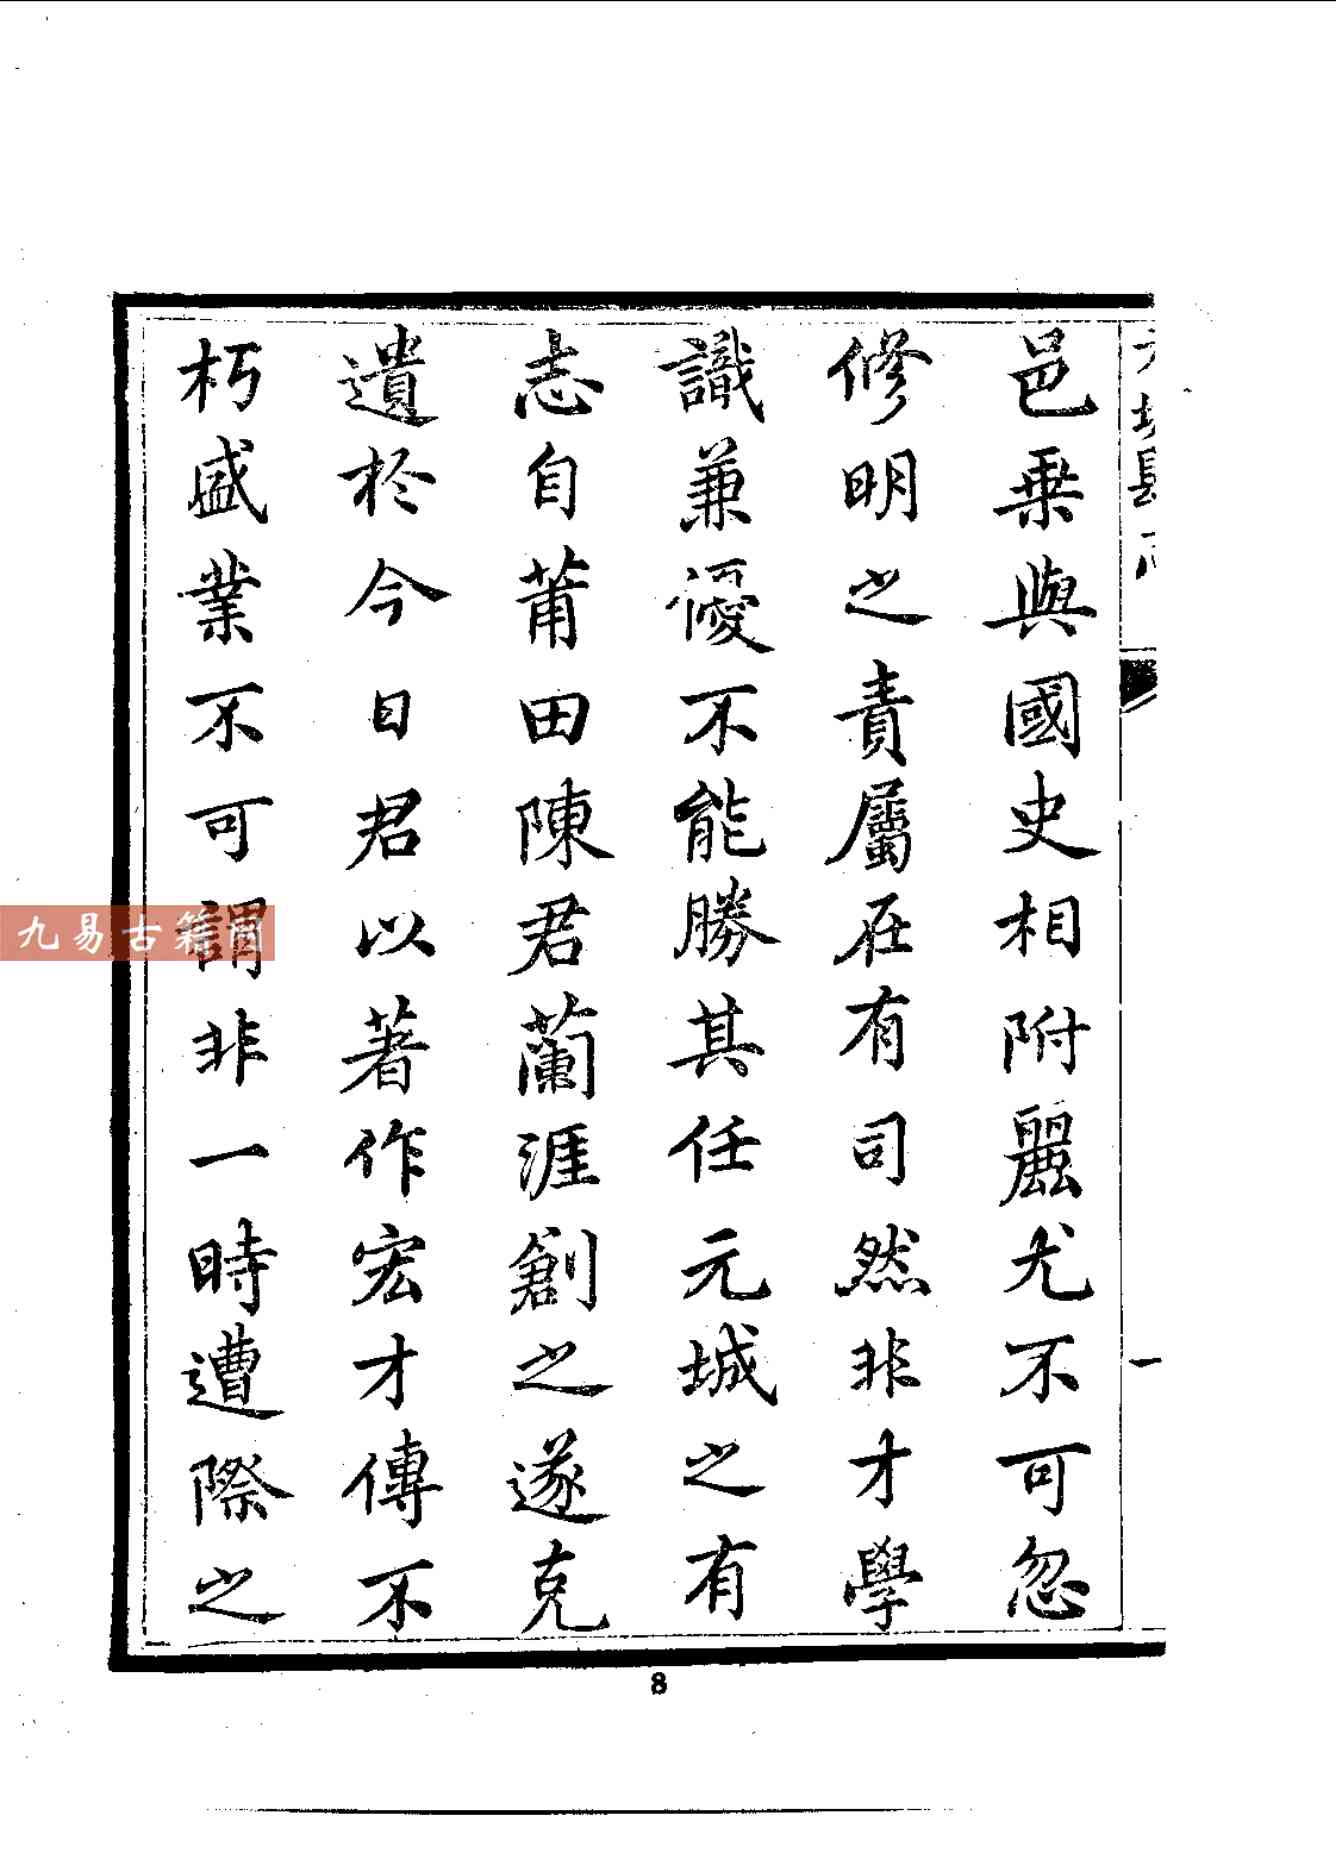 邑乗與國史相附麗尤不可忽
修明之責屬在有司然非才學
識兼優不能勝其任元城之有
志自莆田陳君蘭涯創之遂克
遺於今日君以著作宏才傳不
朽盛業不可謂非一時遭際之
一
8
九易古籍网